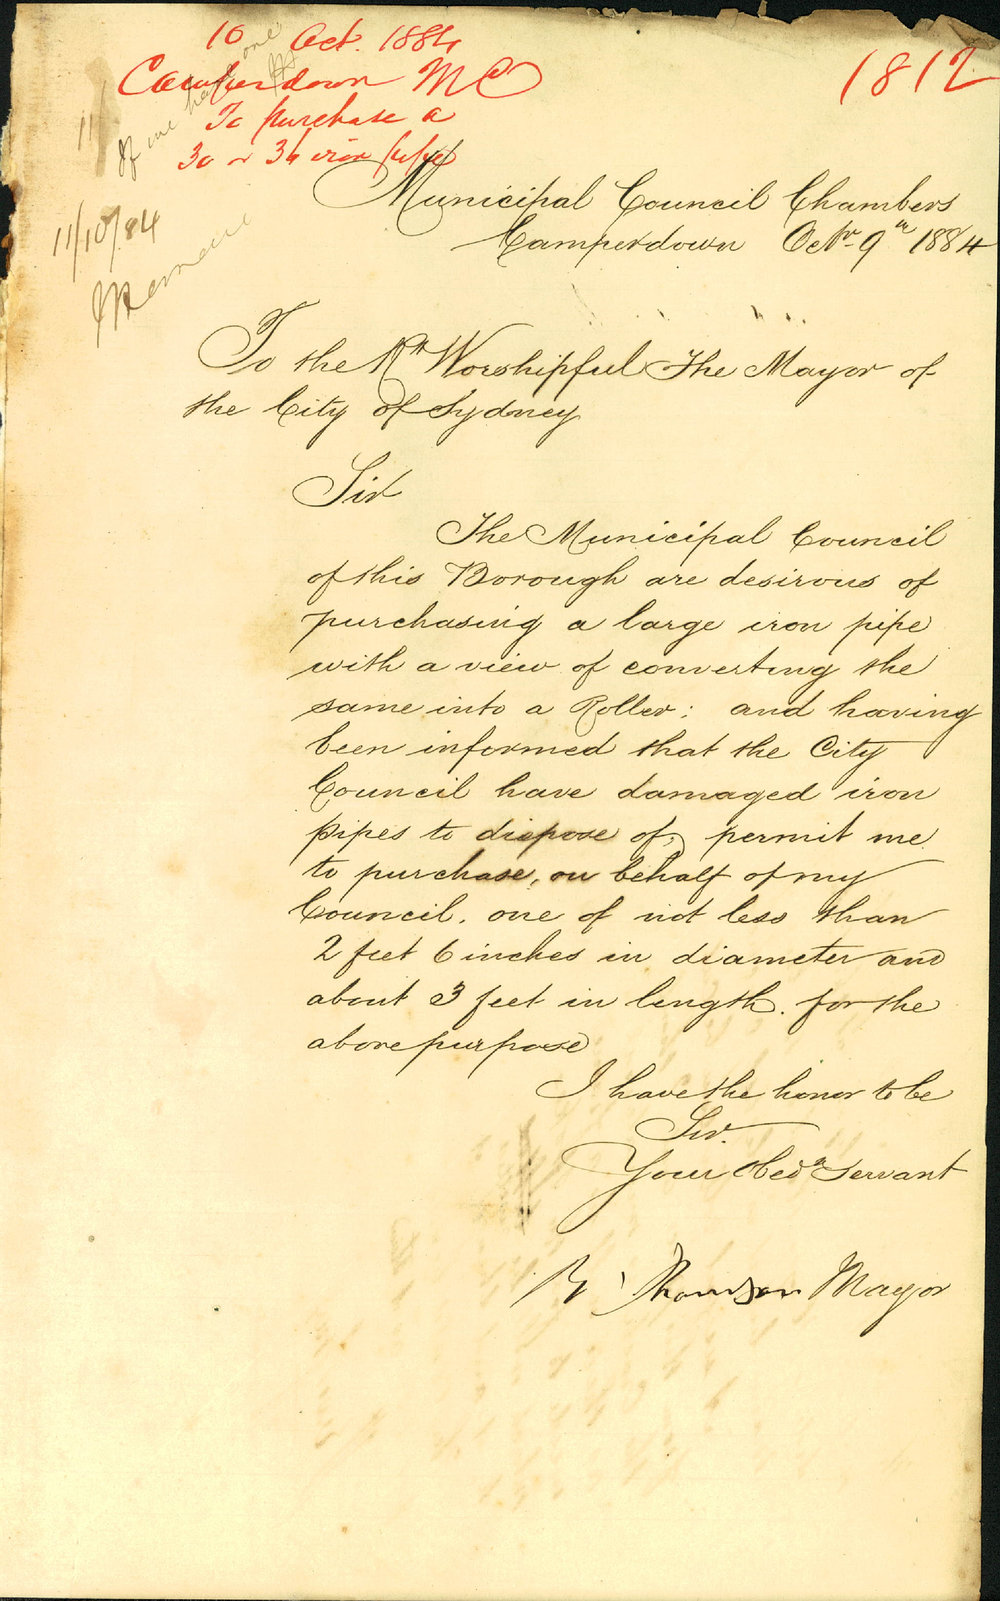 10 Oct. 1884
Camperdown M C
To purchase a
30 or 36 iron pipe
1812
If we have one
11/10/84
Municipal Council Chambers
Camperdown Octr. 9th 1884
To the Rt Worshipful The Mayor of
the City of Sydney
Sir
The Municipal Council
of this Borough are desirous of
purchasing a large iron pipe
with a view of converting the
same into a Roller: and having
been informed that the City
Council have damaged iron
pipes to dispose of, permit me
to purchase, on behalf of my
Council, one of not less than
2 feet 6 inches in diameter and
about 3 feet in length. for the
above purpose
I have the honor to be
Sir.
Your Obedt Servant
Thomson Mayor